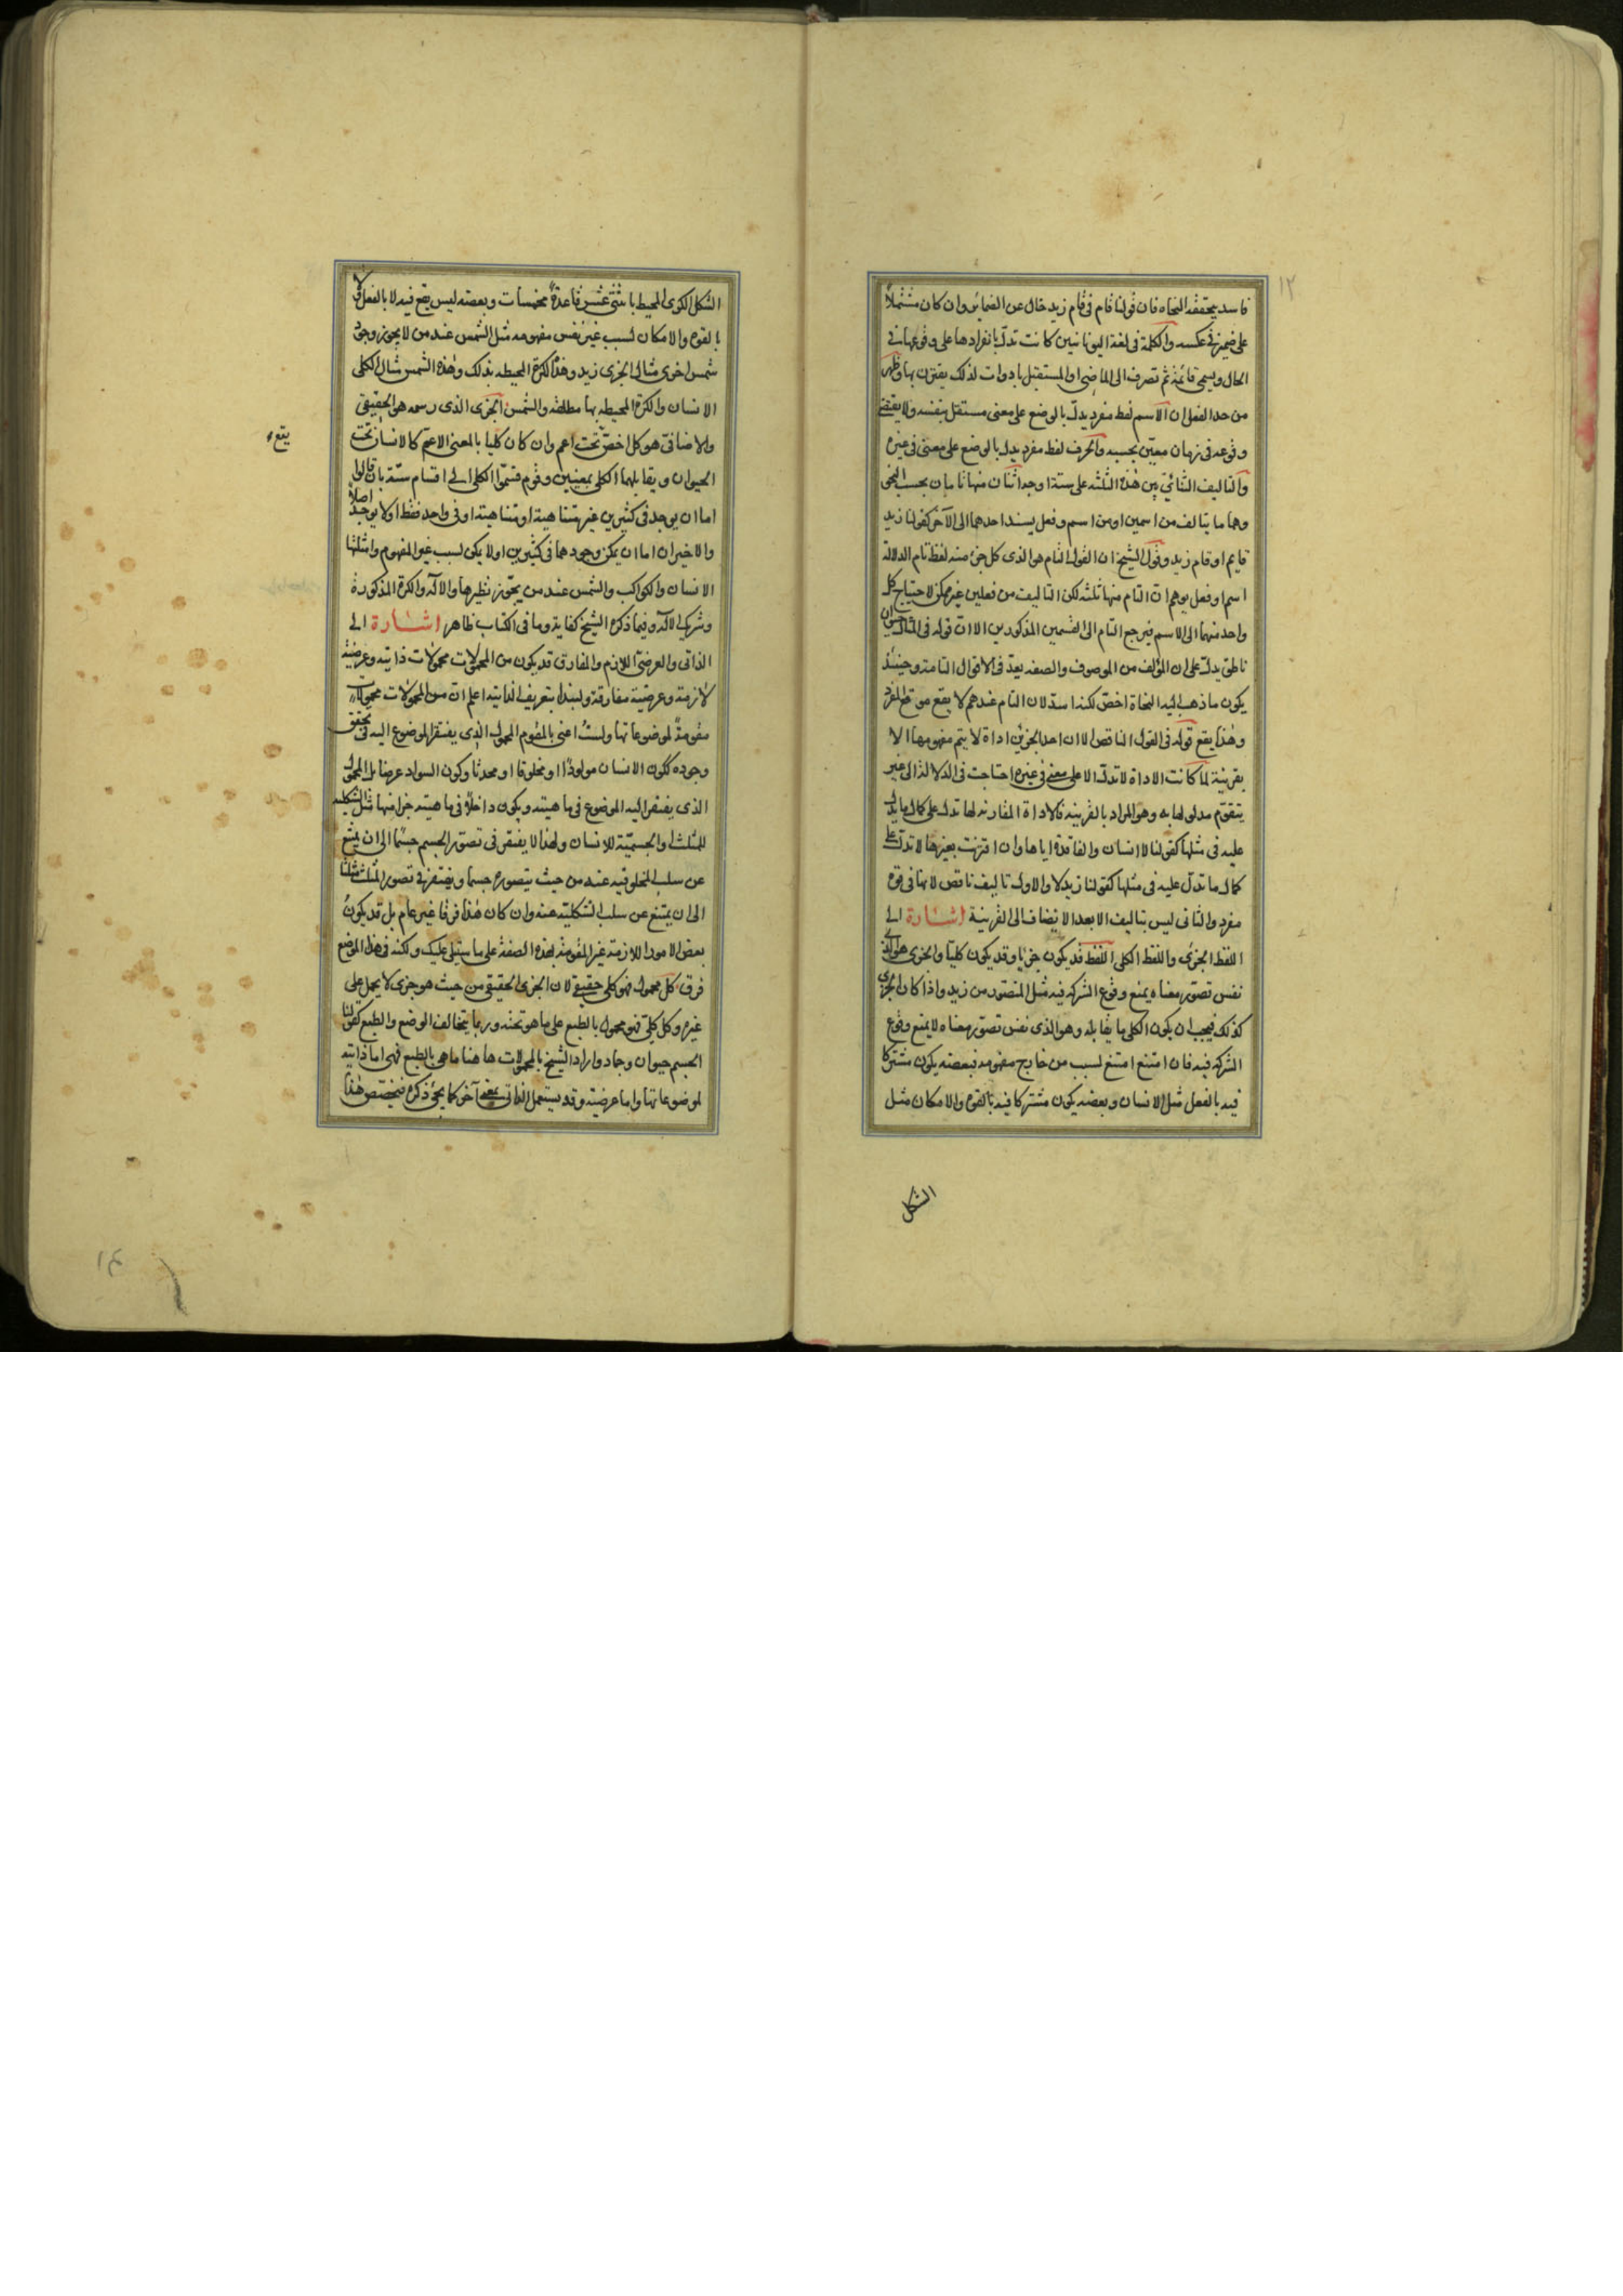 ١٢
فاسد بحققه النحاه فان قولنا قام فى قام زيد خال عن الضمائر وان كان مشتملاً
على ضمير فى عكسه والكلمة فى لغة اليونانيين كانت تدل بانفرادها على وقوعها فى
الحال ويسمى قائمة ثم تصرف الى الماضى او المستقبل بادوات لذلك يقترن بها وظهر
من حد الفعل ان الاسم لفظ مفرد يدل بالوضع على معنى مستقل بنفسه ولا يقتضى
وقوعه فى زمان معين بحسبه والحرف لفظ مفرد يدل بالوضع على معنى فى غيره
والتاليف الثنائى بين هذه الثلثه على ستة اوجه اثنان منها تامان بحسب النحو
وهما ما يتالف من اسمين او من اسم وفعل يسند احدهما الى الآخر كقولنا زيد
قايم او قام زيد وقول الشيخ ان القول التام هو الذى كل جزء منه لفظ تام الدلالة
اسم او فعل يوهم ان التام منها ثلثه لكن التاليف من فعلين غير ممكن لاحتياج كل
واحد منهما الى الاسم فيرجع التام الى القسمين المذكورين الا ان قوله فى المثال حيوان
ناطق يدل على ان المؤلف من الموصوف والصفه يعد فى الاقوال التامة وحينئذ
يكون ما ذهب اليه النحاة اخص لكنه اسد لان التام عندهم لا يقع موقع المفرد
وهذا يقع قوله فى القول الناقص الا ان احد الجزئين اداة لا يتم مفهومها الا
بقرينة لما كانت الاداة لا تدل الا على معنى فى غيره احتاجت فى الدلالة الى غير
يتقوم مدلولها به وهو المراد بالقرينه فالاداة المقارنه لها تدل على كمال ما يدل
عليه فى مثلها كقولنا لا انسان والفاقدة اياها وان اقترنت بغيرها لا تدل على
كمال ما تدل عليه فى مثلها كقولنا زيد لا والاول تاليف ناقص لانها فى قوة
مفرد والثانى ليس بتاليف الا بعد الانضاف الى القرينة اشارة الى
اللفظ الجزئى واللفظ الكلى اللفظ قد يكون جزئيا وقد يكون كليا والجزئى هو الذى
نفس تصور معناه يمنع وقوع الشركه فيه مثل المتصور من زيد واذا كان الجزئى
كذلك فيجب ان يكون الكلى ما يقابله وهو الذى نفس تصور معناه لا يمنع وقوع
الشركه فيه فان امتنع امتنع لسبب من خارج مفهومه فبعضه يكون مشتركا
فيه بالفعل مثل الانسان وبعضه يكون مشتركا فيه بالقوه والامكان مثل
الشكل
الشكل الكرى المحيط باثنتى عشر قاعدة مخمسات وبعضه ليس يقع فيه لا بالفعل ولا
بالقوه والامكان لسبب غير نفس مفهومه مثل الشمس عند من لا يجوز وجود
شمس اخرى مثال الجزى زيد وهذه الكرة المحيطه بذلك وهذه الشمس مثال الكلى
الانسان والكرة المحيطه بها مطلقه والشمس الجزى الذى رسمه هو الحقيقى
والاضافى هو كل اخص تحت اعم وان كان كليا بالمعنى الاعم كالانسان تحت
يقع
الحيوان ويقابلهما الكلى بمعنيين وقوم قسموا الكلى الى اقسام ستة بان قالوا
اما ان يوجد فى كثيرين غير متناهية او متناهية او فى واحد فقط او لا يوجد اصلاً
والاخيران اما ان يمكن وجودهما فى كثيرين او لا يمكن لسبب غير المفهوم وامثلتها
الانسان والكواكب والشمس عند من يجوز نظيرها والاله والكرة المذكورة
وشريك الاله وفيما ذكره الشيخ كفاية وما فى الكتاب ظاهر اشارة الى
الذاتى والعرضى اللازم والمفارق قد يكون من المحمولات محمولات ذاتيه وعرضيه
لازمة وعرضية مفارقة ولنبدا بتعريف الذاتيه اعلم ان من المحمولات محمولات
مقومة لموضوعاتها ولست اعنى بالمقوم المحمول الذى يفتقر الموضوع اليه فى تحقق
وجوده ككون الانسان مولودا او مخلوقا او محدثا وكون السواد عرضا بل المحمول
الذى يفتقر اليه الموضوع فى ماهيته ويكون داخلا فى ماهيته جزا منها مثل الشكليه
للمثلث او الجسمية للانسان ولهذا لا يفتقر فى تصور الجسم جسما الى ان يمتنع
عن سلب المخلوقيه عنه من حيث يتصوره جسما ويفتقر فى تصور المثلث مثلثا
الى ان يمتنع عن سلب الشكليه عنه وان كان هذا فرقا غير عام بل قد يكون
بعض الامور اللازمة غير المقومة بهذه الصفة على ما سيتلى عليك ولكنه فى هذا الموضع
فرق كل محمول فهو كلى حقيقى لان الجزى الحقيقى من حيث هو جزى لا يحمل على
غيره وكل كلى فهو محمول بالطبع على ما هو تحته وربما يتخالف الوضع والطبع كقولنا
الجسم حيوان وجماد واراد الشيخ بالمحمولات هاهنا ما هى بالطبع فهى اما ذاتيه
لموضوعاتها واما عرضية وقد يستعمل الذاتى بمعنى آخر كما يجئ ذكره فيختص هذا
١٤